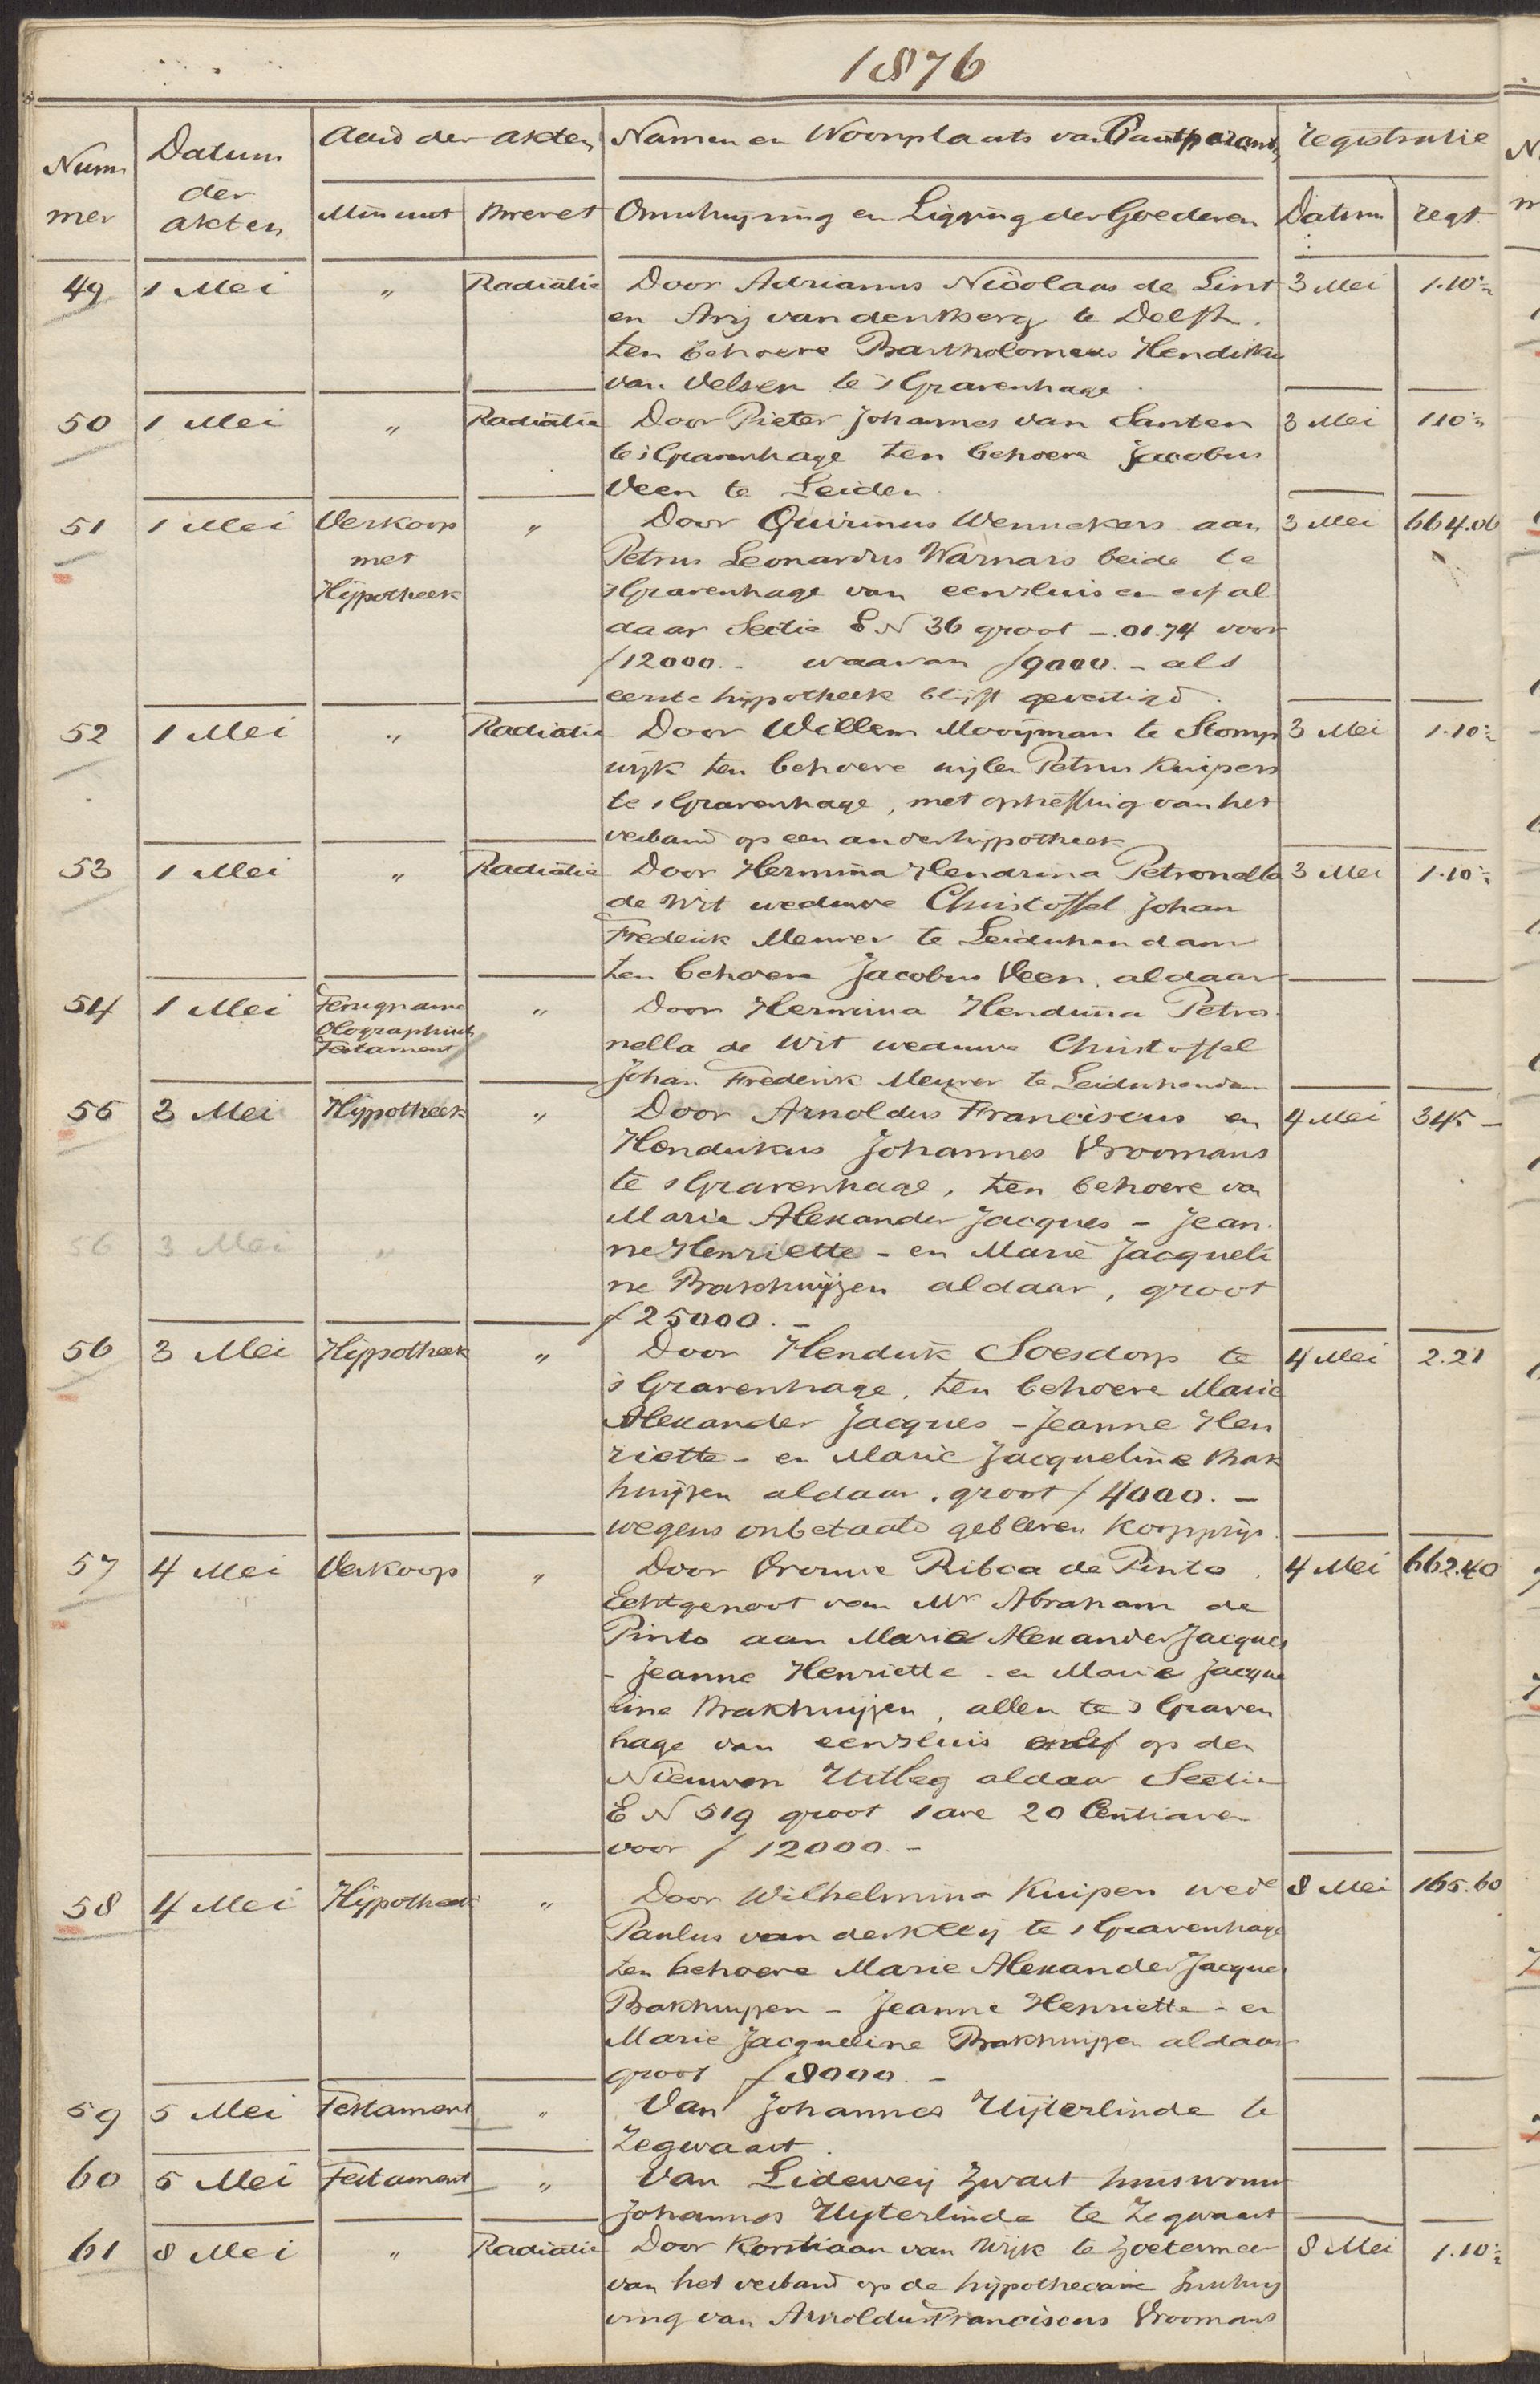 1876
Nummer Datum der akten Aard der akten Namen en Woonplaats van Comparanten registratie
Minuut Brevet Omschrijving en Ligging der Goederen Datum regt
49 1 Mei " Radiatie Door Adrianus Nicolaas de Lint 3 Mei 1.10½
en Arij van den Berg te Delft.
ten behoeve Bartholomeus Hendrikus
van Velsen te 's Gravenhage.
50 1 Mei " Radiatie Door Pieter Johannes van Santen 3 Mei 1.10½
te 's Gravenhage ten behoeve Jacobus
Veen te Leiden.
51 1 Mei Verkoop " Door Quirinus Wennekers aan 3 Mei 664.06
met Petrus Leonardus Warnars beide te
Hijpotheek 's Gravenhage van een huis en erf al
daar Sectie E N 36 groot -.01.74 voor
ƒ 12000.- waarvan ƒ 9000.- als
eerste hijpotheek blijft gevestigd.
52 1 Mei " Radiatie Door Willem Mooijman te Stomp 3 Mei 1.10½
wijk ten behoeve wijlen Petrus Kuipers
te 's Gravenhage, met opheffing van het
verband op een ander hijpotheek
53 1 Mei " Radiatie Door Hermina Hendrina Petronella 3 Mei 1.10½
de Wit weduwe Christoffel Johan
Frederik Meurer te Leidschendam
ten behoeve Jacobus Veen, aldaar
54 1 Mei Terugname " Door Hermina Hendrina Petro-
Olographisch nella de Wit weduwe Christoffel
Testament Johan Frederik Meurer te Leidschendam
55 3 Mei Hijpotheek " Door Arnoldus Franciscus en 4 Mei 345 -
Hendrikus Johannes Vroomans
te 's Gravenhage, ten behoeve van
Marie Alexander Jacques - Jean-
56 3 Mei " ne Henriette - en Marie Jacqueli
ne Brakhuijzen aldaar, groot
ƒ 25000.-
56 3 Mei Hijpotheek " Door Hendrik Soesdorp te 4 Mei 2.21
's Gravenhage, ten behoeve Marie
Alexander Jacques - Jeanne Hen
riette - en Marie Jacqueline Brak
huijzen aldaar, groot ƒ 4000.-
wegens onbetaald gebleven Koopprijs.
57 4 Mei Verkoop " Door Vrouwe Ribca de Pinto 4 Mei 662.40
Echtgenoot van Mr Abraham de
Pinto aan Marie Alexander Jacques
- Jeanne Henriette - en Marie Jacque
line Brakhuijzen, allen te 's Graven
hage van een huis en erf op den
Nieuwen Uitleg aldaar Sectie
E N 519 groot 1 are 20 Centiaren
voor ƒ 12000.-
58 4 Mei Hijpotheek " Door Wilhelmina Kuipen wede 8 Mei 165.60
Paulus van der Kleij te 's Gravenhage
ten behoeve Marie Alexander Jacques
Brakhuijzen - Jeanne Henriette - en
Marie Jacqueline Brakhuijzen aldaar
groot ƒ 8000.-
59 5 Mei Testament " Van Johannes Uijterlinde te
Zegwaart.
60 5 Mei Testament " Van Lideweij Zwart huisvrouw
Johannes Uijterlinde te Zegwaart
61 8 Mei " Radiatie Door Korstiaan van Wijk te Zoetermeer 8 Mei 1.10½
van het verband op de hijpothecaire Inschrij
ving van Arnoldus Franciscus Vroomans